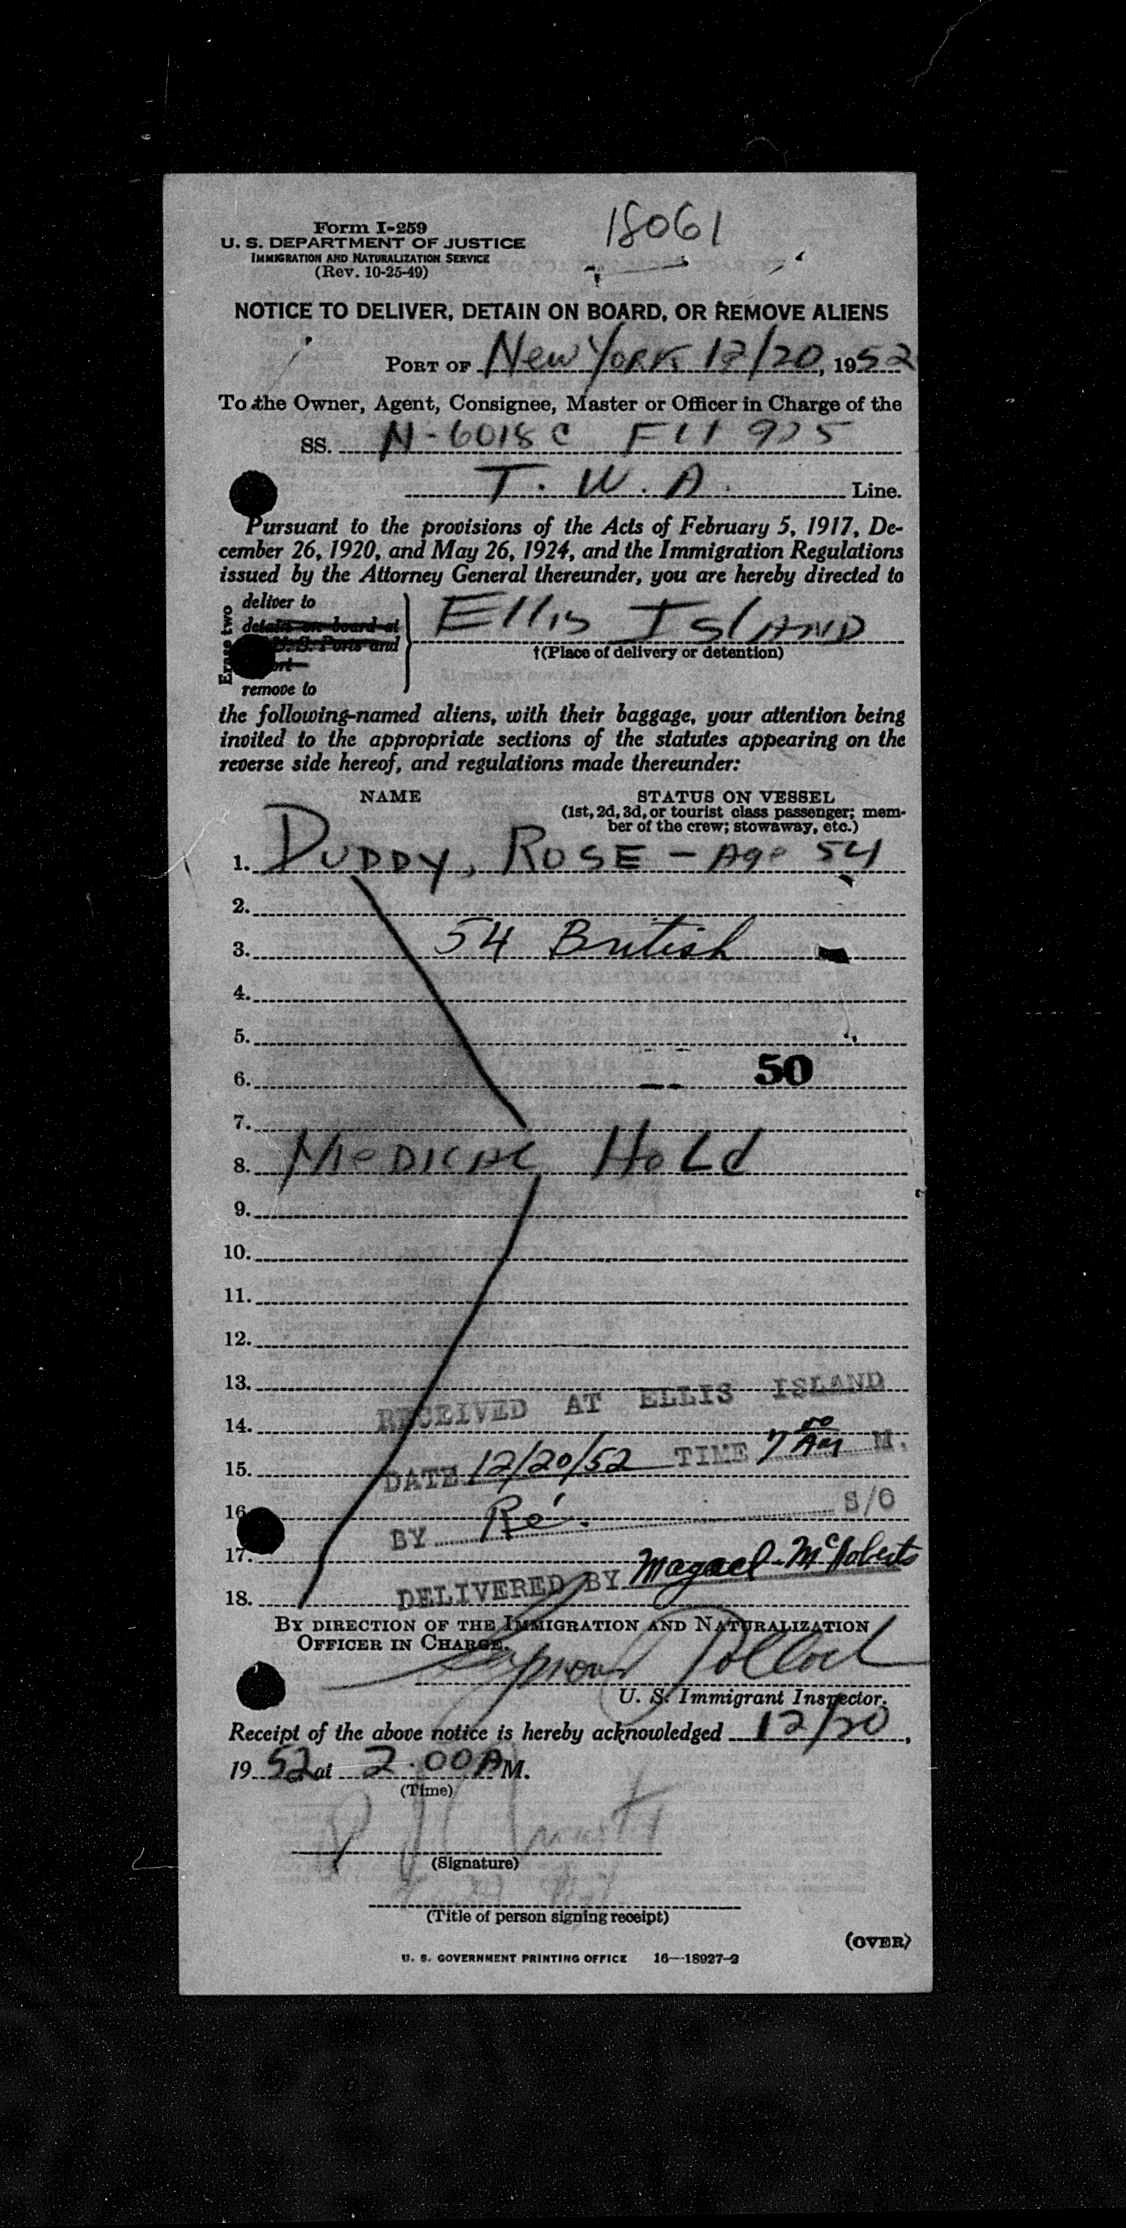 18061
Form I-259
U. S. DEPARTMENT OF JUSTICE
IMMIGRATION AND NATURALIZATION SERVICE
(Rev. 10-25-49)
NOTICE TO DELIVER, DETAIN ON BOARD, OR REMOVE ALIENS
PORT OF New York 12/20, 1952
To the Owner, Agent, Consignee, Master or Officer in Charge of the
SS. N-6018C Flt 925
T. W. A. Line.
Pursuant to the provisions of the Acts of February 5, 1917, De-
cember 26, 1920, and May 26, 1924, and the Immigration Regulations
issued by the Attorney General thereunder, you are hereby directed to
Erase two
deliver to
detain on board at
U. S. Ports and
remove to
Ellis Island
†(Place of delivery or detention)
the following-named aliens, with their baggage, your attention being
invited to the appropriate sections of the statutes appearing on the
reverse side hereof, and regulations made thereunder:
NAME STATUS ON VESSEL
(1st, 2d, 3d, or tourist class passenger; mem-
ber of the crew; stowaway, etc.)
1. DUDDY, ROSE - Age 54
2.
3. 54 British
4.
5.
6. 50
7.
8. MEDICAL HOLD
9.
10.
11.
12.
13.
RECEIVED AT ELLIS ISLAND
14.
15. DATE 12/20/52 TIME 7 00 AM M.
16.
BY Ré. S/O
17.
DELIVERED BY Magael-McRoberts
18.
BY DIRECTION OF THE IMMIGRATION AND NATURALIZATION
OFFICER IN CHARGE.
Seymour Pollock
U. S. Immigrant Inspector.
Receipt of the above notice is hereby acknowledged 12/20,
1952 at 2.00 A M.
(Time)
(Signature)
(Title of person signing receipt)
(OVER)
U. S. GOVERNMENT PRINTING OFFICE 16—18927-2